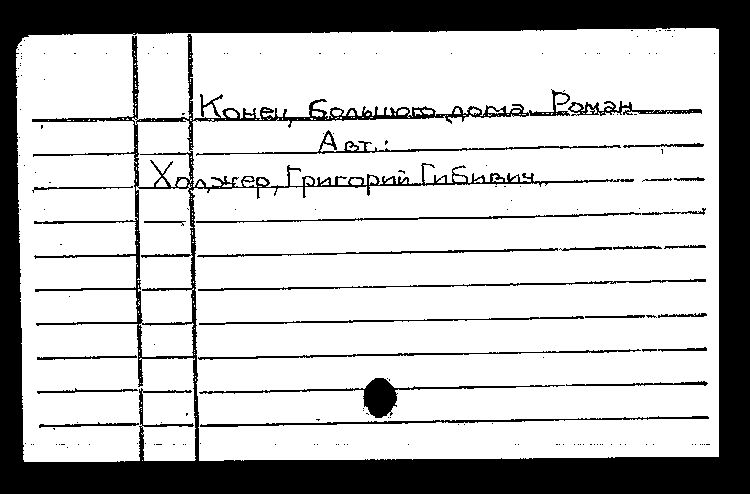 Конец большого дома. Роман
Авт.:
Ходжер, Григорий Гибивич.